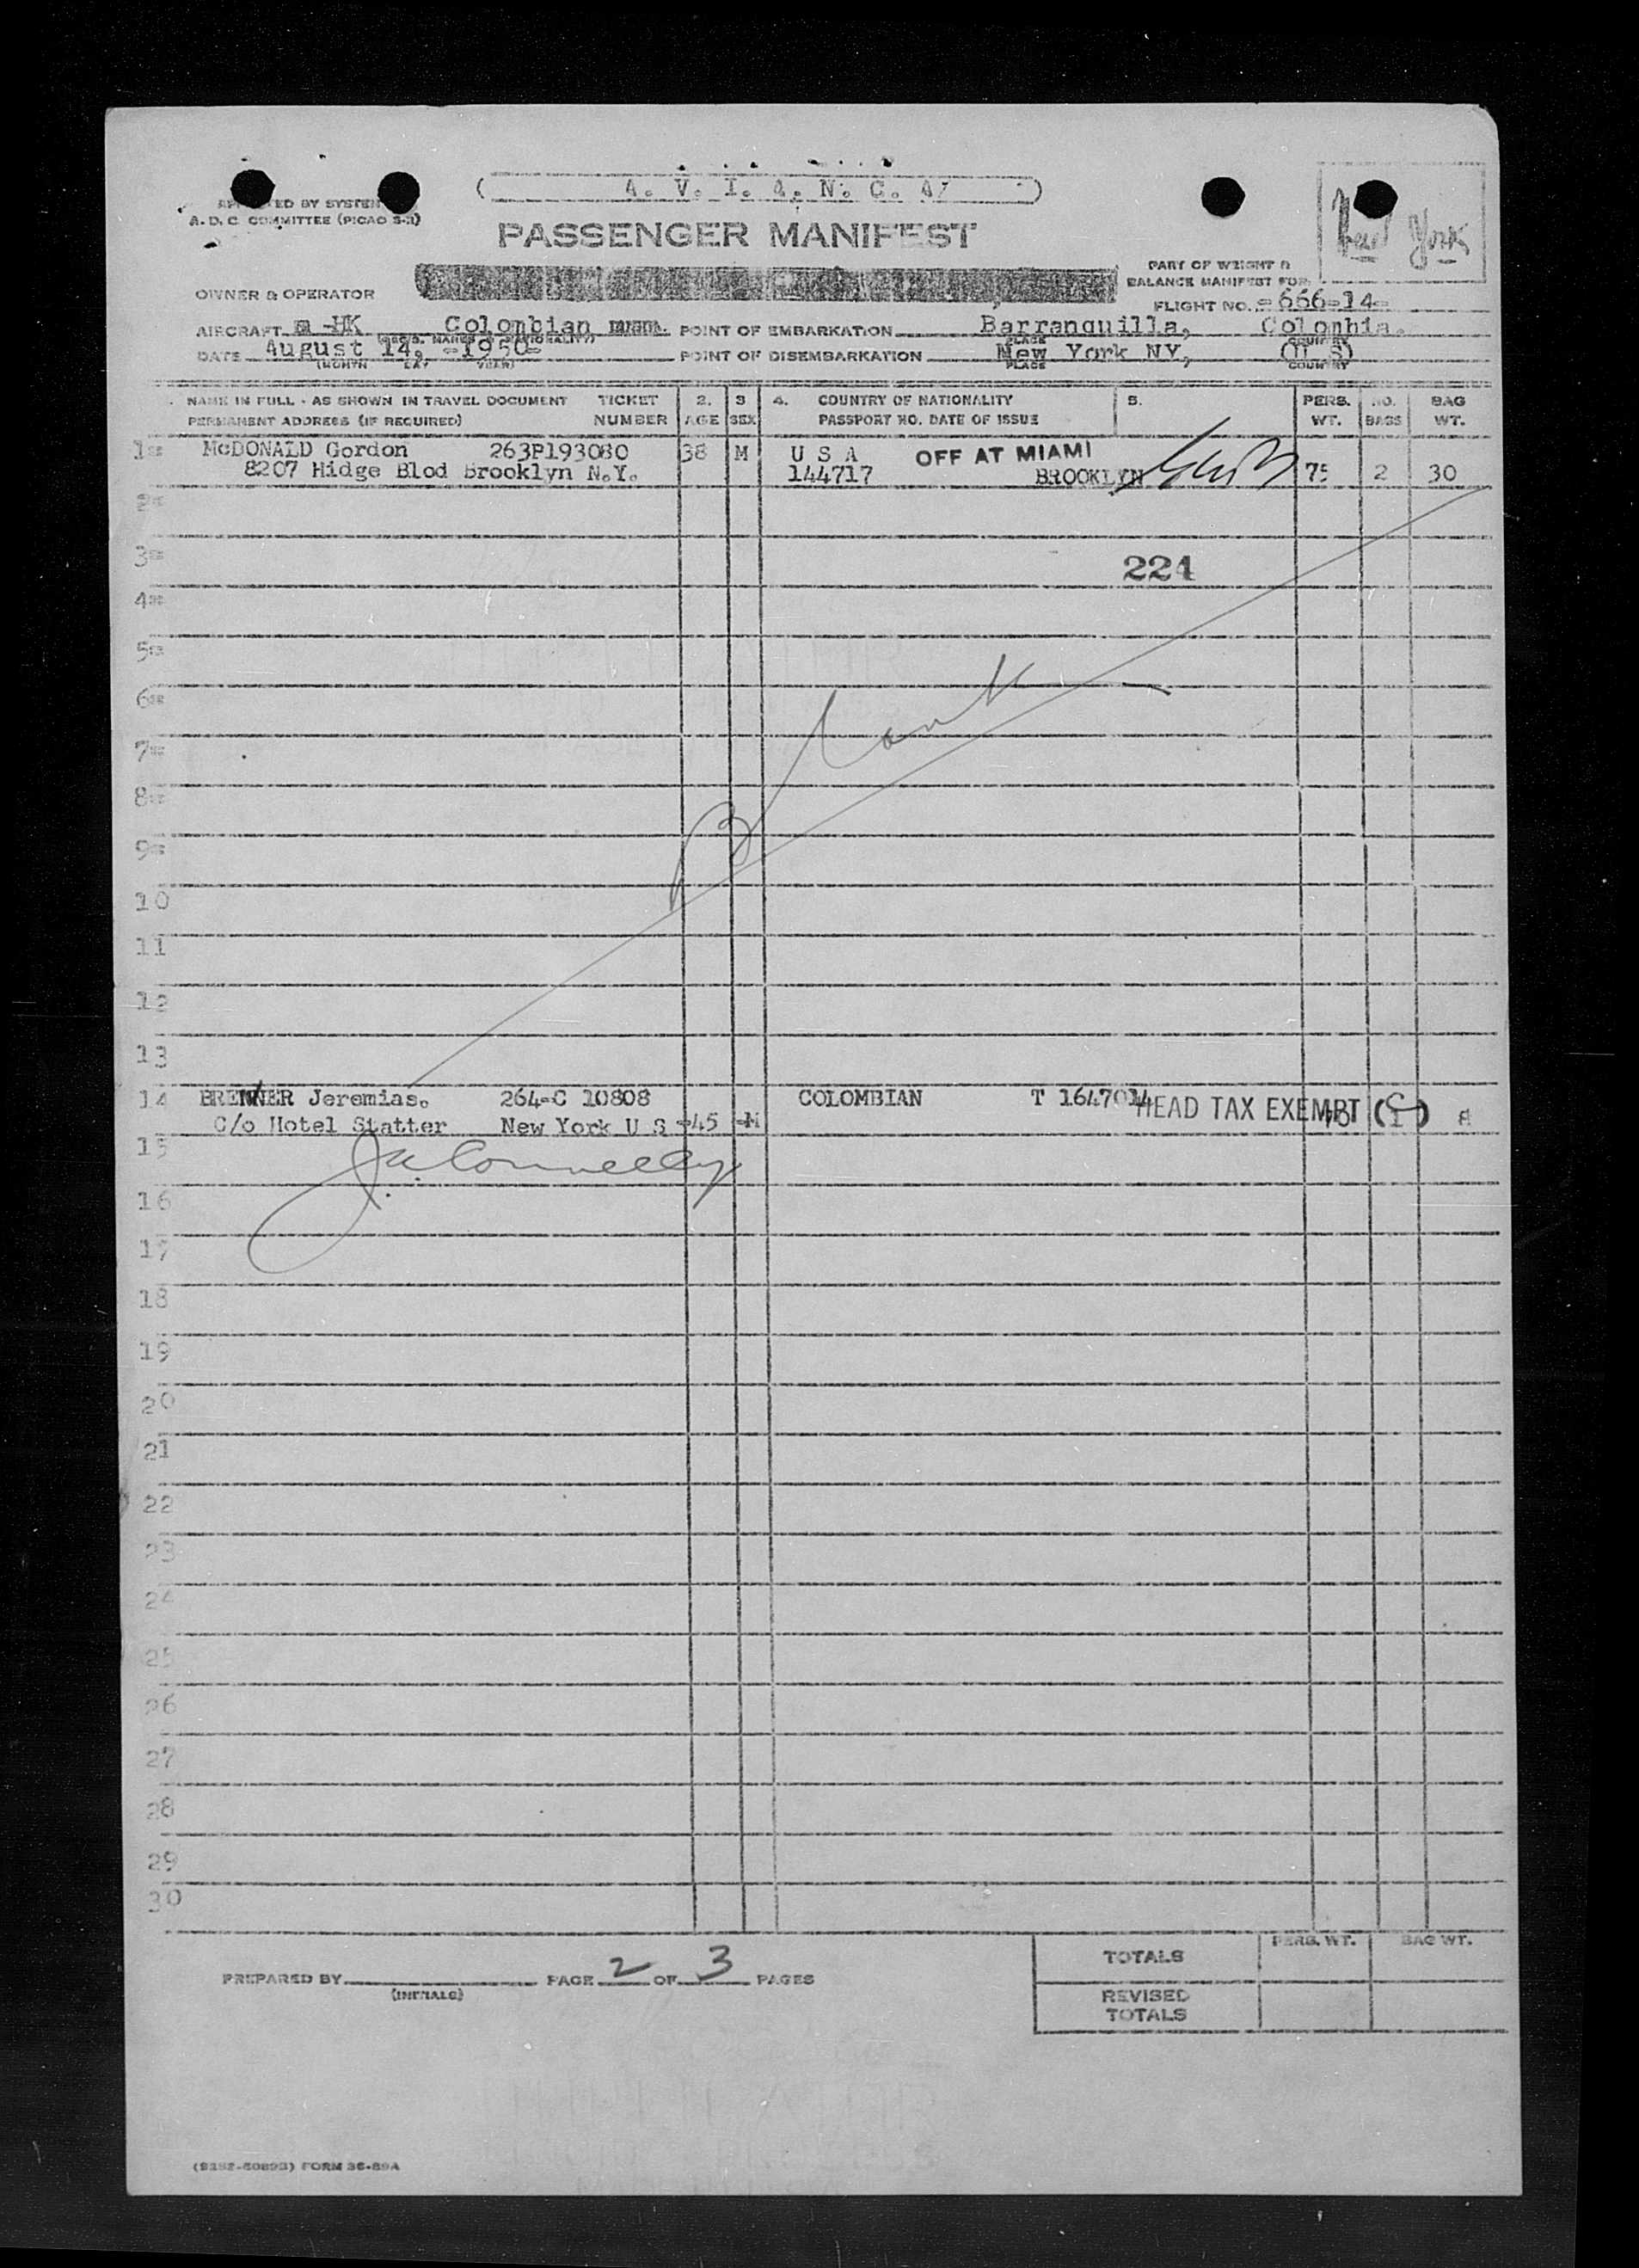 ( A. V. I. A. N. C. A. )
A. D. C. COMMITTEE (PICAO S-3)
PASSENGER MANIFEST
New York
PART OF WEIGHT &
BALANCE MANIFEST FOR
OWNER & OPERATOR
FLIGHT NO. -666-14-
AIRCRAFT HK Colombian POINT OF EMBARKATION Barranquilla, Colombia.
DATE August 14, -1950- POINT OF DISEMBARKATION New York NY, (U S)
(MONTH DAY YEAR) PLACE COUNTRY
NAME IN FULL - AS SHOWN IN TRAVEL DOCUMENT TICKET 2. 3 4. COUNTRY OF NATIONALITY 5. PERS. NO. BAG
PERMANENT ADDRESS (IF REQUIRED) NUMBER AGE SEX PASSPORT NO. DATE OF ISSUE WT. BAGS WT.
1= McDONALD Gordon 263P193080 38 M U S A OFF AT MIAMI
8207 Hidge Blod Brooklyn N.Y. 144717 BROOKLYN 75 2 30
2=
3= 224
4=
5=
6=
7=
Blank
8=
9=
10
11
12
13
14 BRENNER Jeremias. 264-C 10808 COLOMBIAN T 1647014 HEAD TAX EXEMPT
C/o Hotel Statter New York U S -45 -M 8
15
J. A. Connelly
16
17
18
19
20
21
22
23
24
25
26
27
28
29
30
PREPARED BY PAGE 2 OF 3 PAGES
(INITIALS)
TOTALS PERS. WT. BAG WT.
REVISED
TOTALS
FORM 36-89A